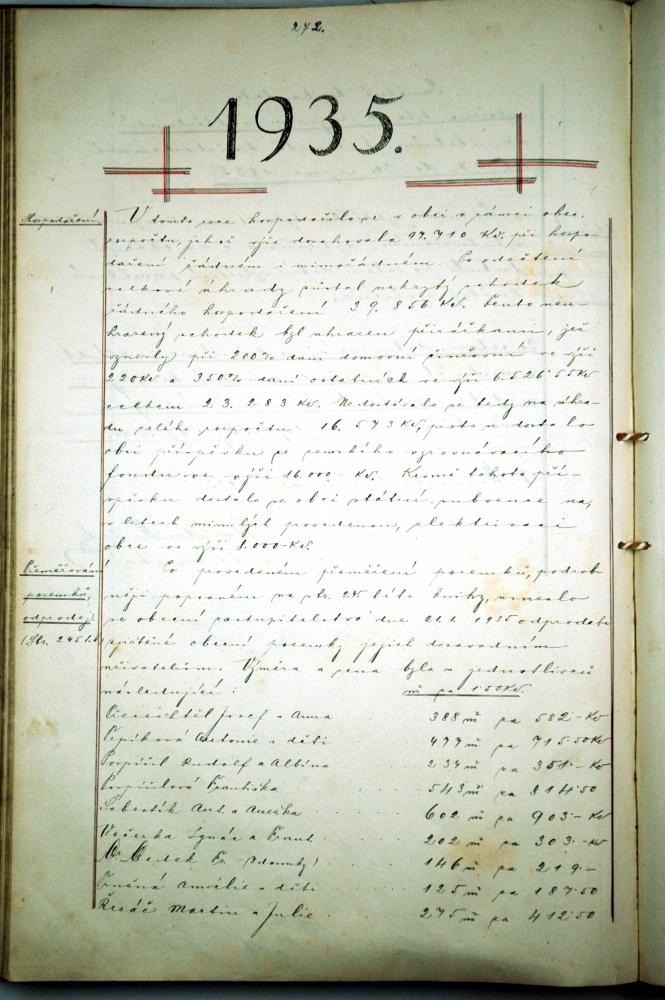 272.
1935.
Hospodaření.
V tomto roce hospodařilo se v obci v rámci obec.
rozpočtu, jehož výše dosahovala 97.710 Kč. při hospo-
daření řádném i mimořádném. Po odečtení
celkové úhrady zůstal nekrytý schodek
řádného hospodaření 39.856 Kč. Tento neu-
hrazený schodek byl uhrazen přirážkami, jež
vynesly při 200% dani domovní činžovní ve výši
220 Kč a 350% daní ostatních ve výši
celkem 23.283 Kč. Nedostávalo se tedy na úhra-
du celého rozpočtu 16.573 Kč, proto dostalo
obci příspěvku ze zemského vyrovnávacího
fondu ve výši 16.000 Kč. Kromě tohoto pří-
spěvku dostalo se obci státní subvence na,
v letech minulých provedenou, elektrisaci
obce ve výši 5.000 Kč.
Přeměřování
pozemků,
odprodej.
(Str. 245 t.k.)
Po provedeném přeměření pozemků, podrob-
něji popsaném na str. 245 této knihy, usneslo
se obecní zastupitelstvo dne 21.1. 1935 odprodati
zjištěné obecní pozemky jejich dosavadním
uživatelům. Výměra a cena byla u jednotlivců
následující: m² za 1·50 Kč.
Josef a Anna 388 m² za 582·- Kč
Čepíková Antonie a děti 477 m² za 715·50 Kč
Pospíšil Rudolf a Albína 234 m² za 351·- Kč
Pospíšilová Františka 543 m² za 814·50
Sobotík Ant. a Anežka 602 m² za 903·- Kč
Večerka Ignác a Frant. 202 m² za 303·- Kč
Fr. 146 m² za 219·-
Amálie a děti 125 m² za 187·50
Řezáč Martin a Julie 275 m² za 412·50